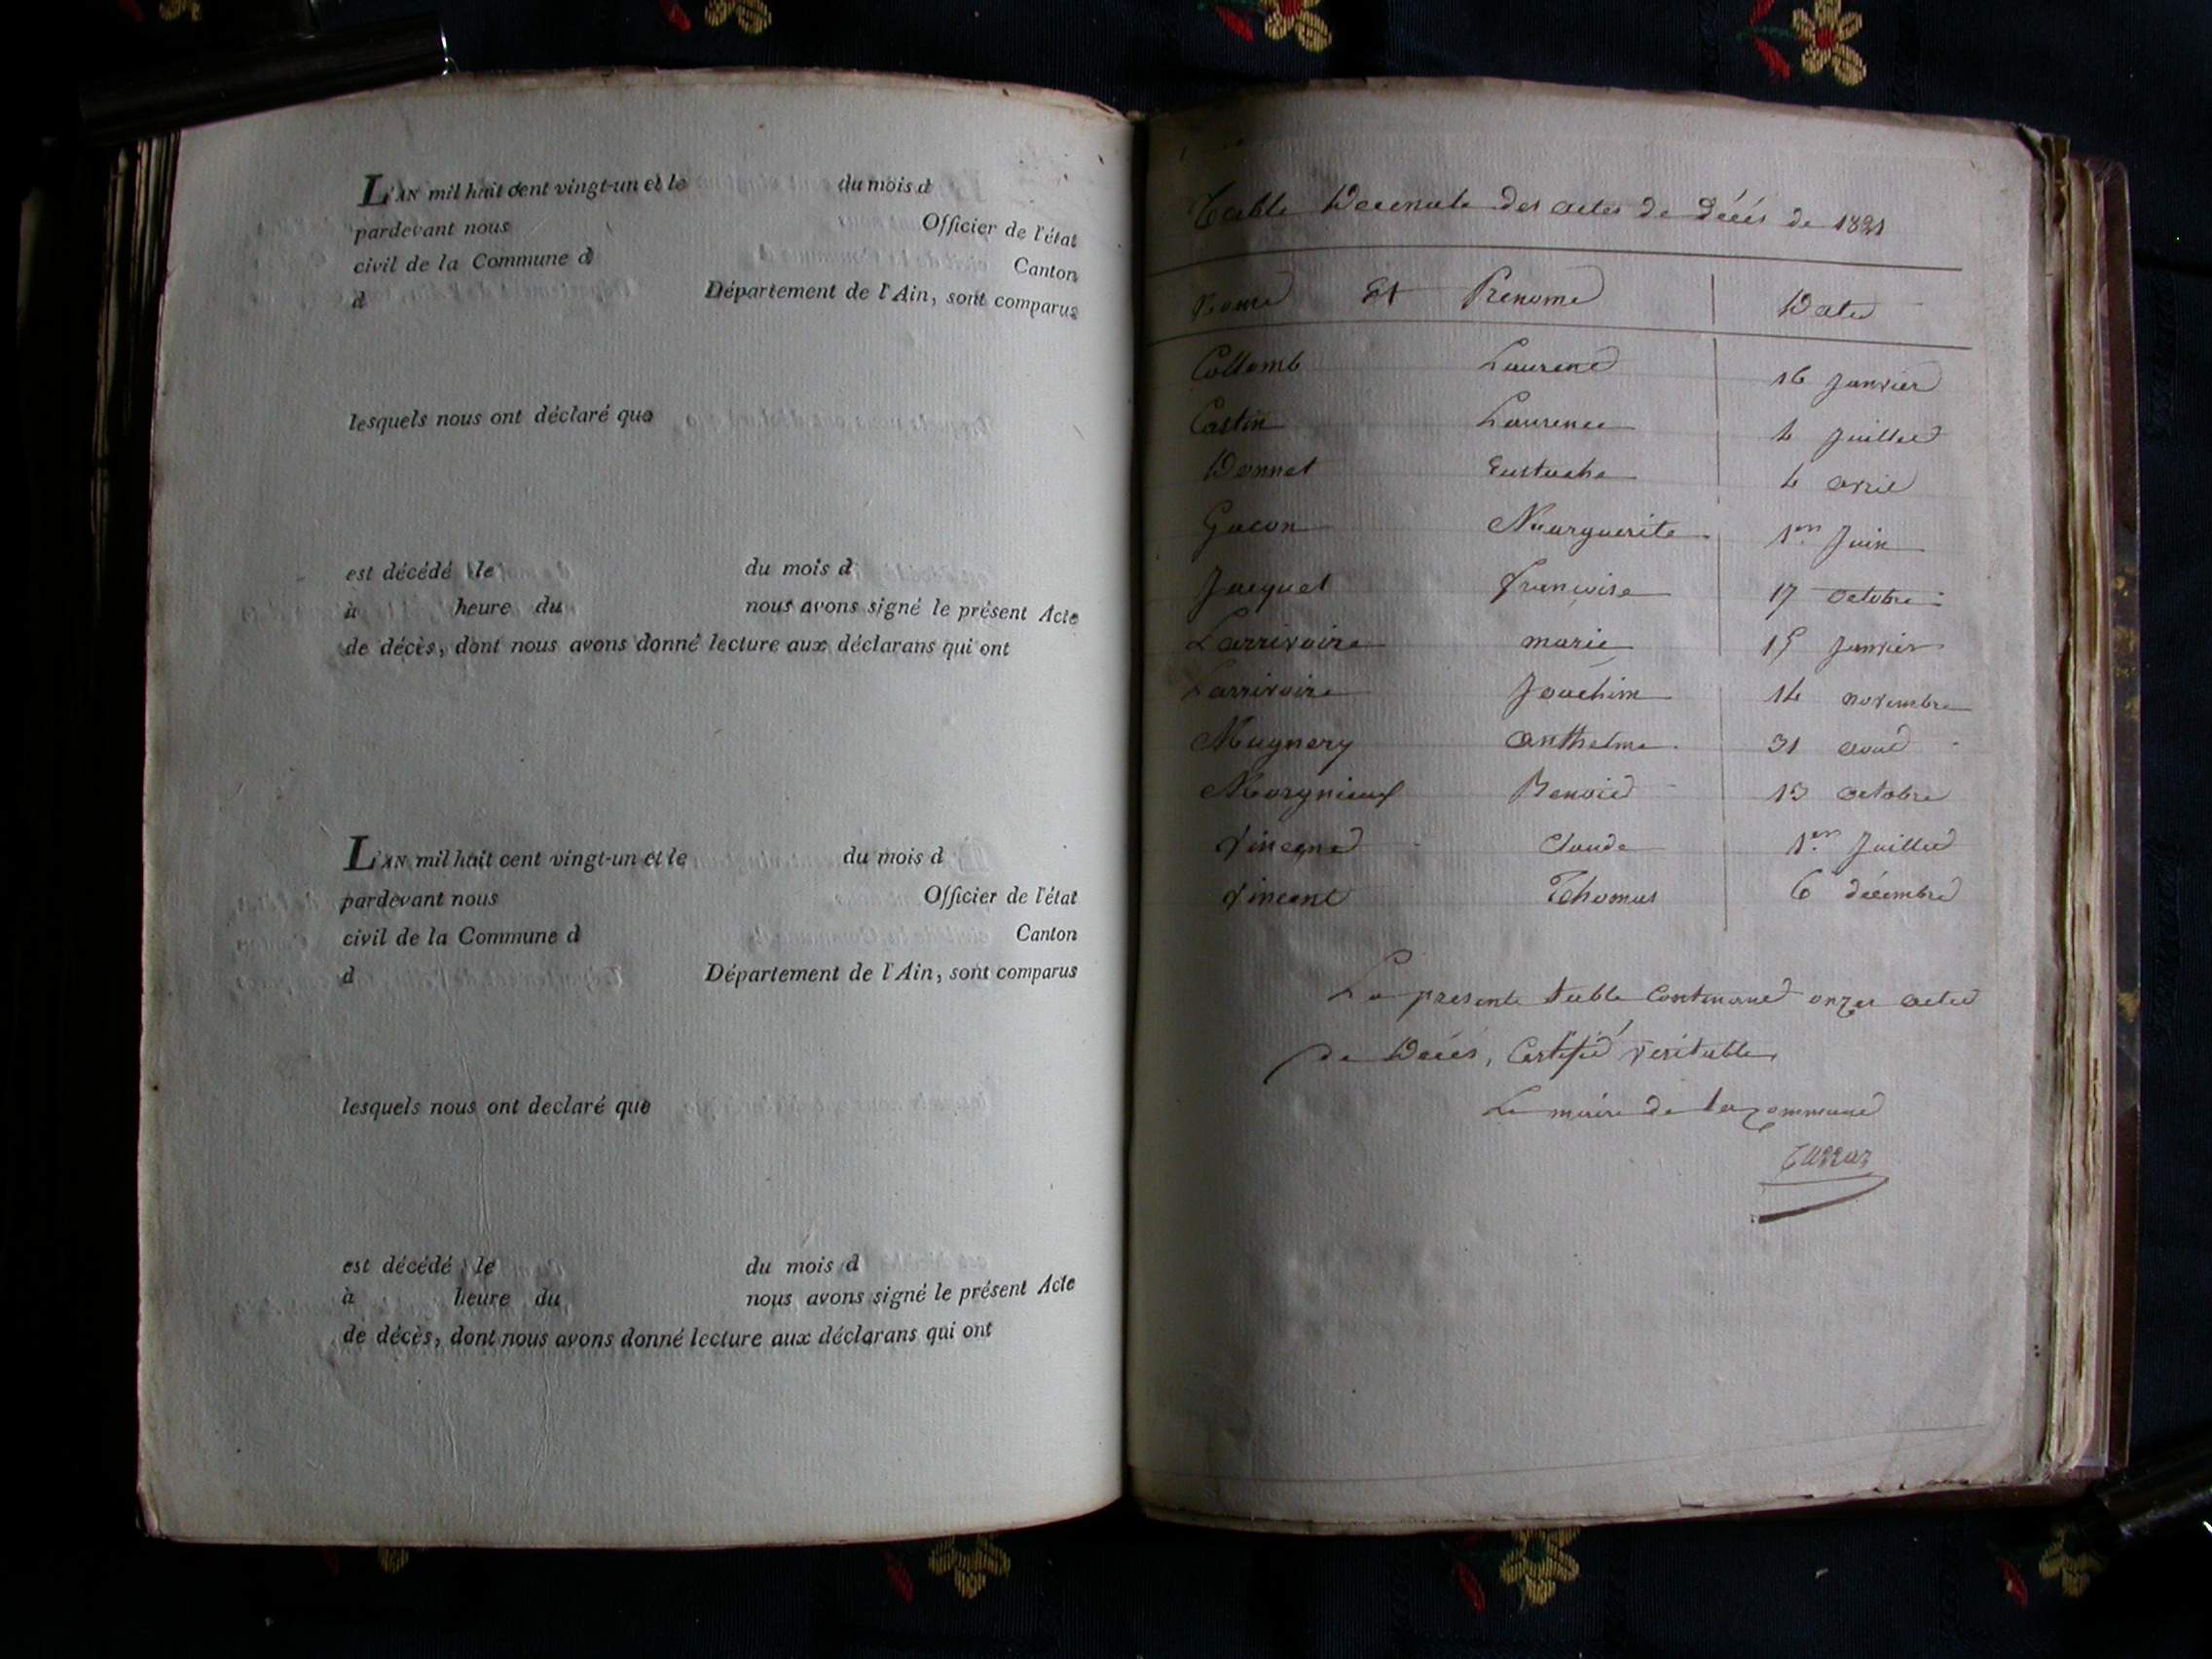 L'AN mil huit cent vingt-un et le du mois d
pardevant nous Officier de l'état
civil de la Commune d Canton
d Département de l'Ain, sont comparus
lesquels nous ont déclaré que
est décédé le du mois d
à heure du nous avons signé le présent Acte
de décès, dont nous avons donné lecture aux déclarans qui ont
L'AN mil huit cent vingt-un et le du mois d
pardevant nous Officier de l'état
civil de la Commune d Canton
d Département de l'Ain, sont comparus
lesquels nous ont declaré que
est décédé le du mois d
à heure du nous avons signé le présent Acte
de décès, dont nous avons donné lecture aux déclarans qui ont
Table Decenale des actes de Décés de 1821
Noms Et Prenoms Dates
Collomb Laurent 16 Janvier
Costin Laurence 4 Juillet
Donnet Eustache 4 avril
Gacon Marguerite 1er Juin
Jacquet françoise 17 octobre
Larrivoire marie 15 Janvier
Larrivoire Joachim 14 novembre
Mugnery anthelme 31 aout
Morgnieux Benoit 13 octobre
Vincent Claude 1er Juillet
Vincent Thomas 6 décembre
La presente table Contenant onzes actes
de Décés, Certifié véritable,
Le maire de la commune